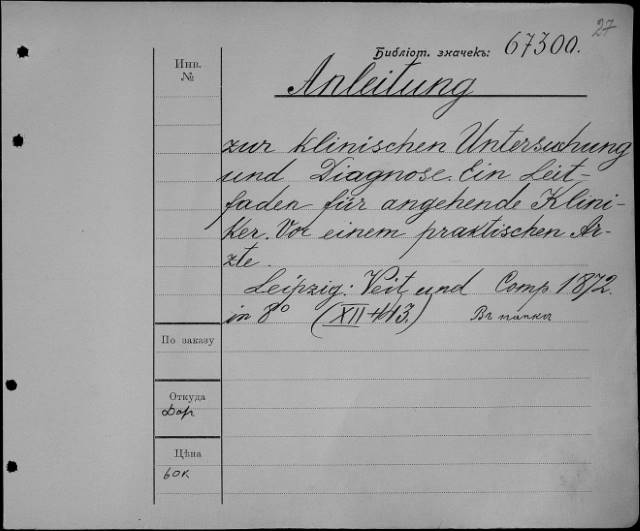 27
Библіот. значекъ: 67300.
Инв.
№
Anleitung
zur klinischen Untersuchung
und Diagnose. Ein Leit-
faden für angehende Klini-
ker. Vor einem praktischen Ar-
zte.
Leipzig: Veit und Comp 1872.
in 8° (XII + 113.) Въ папкѣ
По заказу
Откуда
Дар
Цѣна
60к